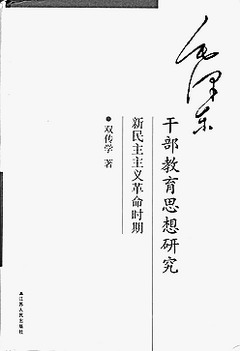 毛泽东
干部教育思想研究
新民主主义革命时期
•双传学 著
江苏人民出版社